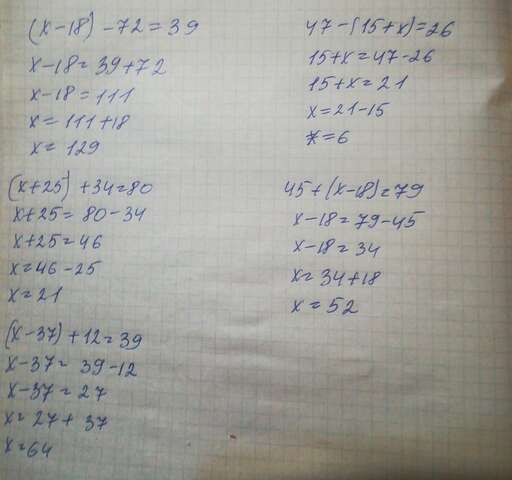 (x-18)-72=39
x-18=39+72
x-18=111
x=111+18
x=129
47-(15+x)=26
15+x=47-26
15+x=21
x=21-15
x=6
(x+25)+34=80
x+25=80-34
x+25=46
x=46-25
x=21
45+(x-18)=79
x-18=79-45
x-18=34
x=34+18
x=52
(x-37)+12=39
x-37=39-12
x-37=27
x=27+37
x=64